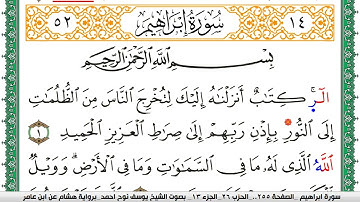 ١٤ سُورَةُ إِبْرَاهِيمَ ٥٢
بِسْمِ اللَّهِ الرَّحْمَٰنِ الرَّحِيمِ
الٓرۚ كِتَٰبٌ أَنزَلْنَٰهُ إِلَيْكَ لِتُخْرِجَ النَّاسَ مِنَ الظُّلُمَاتِ
إِلَى النُّورِ بِإِذْنِ رَبِّهِمْ إِلَىٰ صِرَٰطِ الْعَزِيزِ الْحَمِيدِ ١
اللَّهُ الَّذِي لَهُۥ مَا فِي السَّمَٰوَٰتِ وَمَا فِي الْأَرْضِۗ وَوَيْلٌ
سورة ابراهيم .. الصفحة ٢٥٥... الحزب ٢٦ .. الجزء ١٣ .. بصوت الشيخ يوسف نوح احمد .. برواية هشام عن ابن عامر